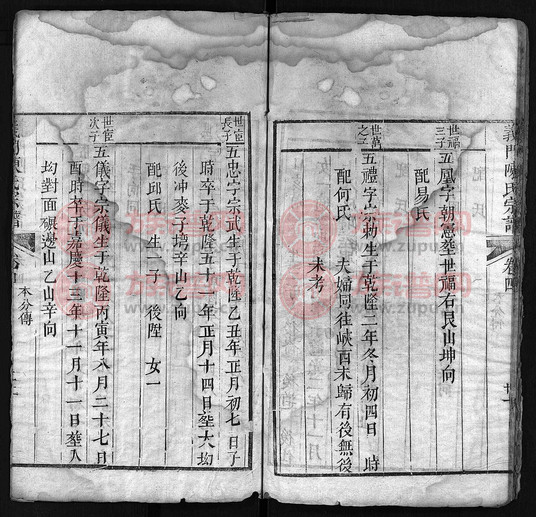 義門陳氏宗譜 卷四
世福三子
五鳳字朝憲塟世福右艮山坤向
配易氏
世萬之子
五禮字宗勅生于乾隆二年冬月初四日 時
配何氏 夫婦同往峽西未歸有後無後
未考
世宦長子
五忠字宗武生于乾隆乙丑年正月初七日子
時卒于乾隆五十二年正月十四日塟大㘭
後冲麥子塆辛山乙向
配邱氏 生一子 後陞 女一
世宦次子
五儀字宗儀生于乾隆丙寅年八月二十七日
酉時卒于嘉慶十三年十一月十一日塟八
㘭對面碾邊山乙山辛向
本分傳
族譜网
www.zupu.cn